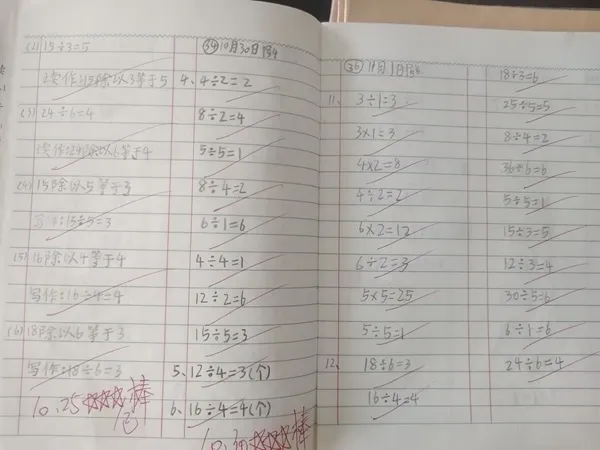 (2) 15÷3=5
读作:15除以3等于5
(3) 24÷6=4
读作:24除以6等于4
(4) 15除以5等于3
写作:15÷5=3
(5) 16除以4等于4
写作:16÷4=4
(6) 18除以6等于3
写作:18÷6=3
10.25 棒
㉞ 10月30日
4、4÷2=2
8÷2=4
5÷5=1
8÷4=2
6÷1=6
4÷4=1
12÷2=6
15÷5=3
5、12÷4=3(个)
6、16÷4=4(个)
10.30 棒
11月1日
11、3÷1=3
3×1=3
4×2=8
4÷2=2
6×2=12
6÷2=3
5×5=25
5÷5=1
12、18÷6=3
16÷4=4
18÷3=6
25÷5=5
8÷4=2
36÷6=6
5÷5=1
15÷3=5
12÷3=4
30÷5=6
6÷1=6
24÷6=4